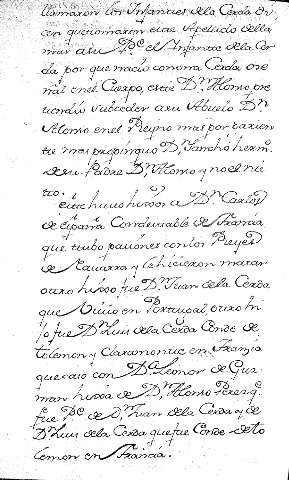 llamaron los Infantes de la Cerda di
cen que tomaron este Apellido de lla
mar a su P.e el Infante de la Cer
da por que nacio con una Cerda ore
en el Cuerpo, este D.n Alonso, pre
tendio subceder a su Abuelo D.n
Alonso en el Reyno mas por parien
te mas propinquo D.n Sancho herm.o
de su Padre D.n Alonso y no el nie
to.
este huuo hixos a D.n Carlos
de españa Condestable de Francia
que tubo pasiones con los Reyes
de Nauarra y le hicieron matar
otro hixo fue D.n Juan de la Cerda
que Uiuio en Portugal, otro hi
jo fue D.n Luis de la Cerda Conde de
tolemon y Claramonte en Franzia
que caso con D.a Leonor de Guz
man hixa de D.n Alonso Perez q.e
fue P.e de D.n Juan de la Cerda y de
D.n Luis de la Cerda que fue Conde de to
lemon en Francia.